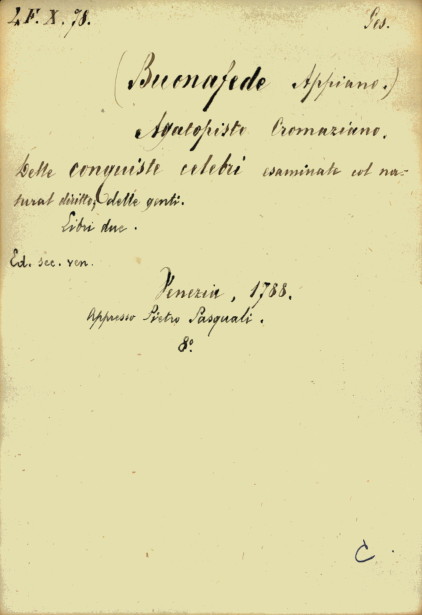 4 F. X. 78. Pes.
(Buonafede Appiano.)
Agatopisto Cromaziano.
Delle conquiste celebri esaminate col na-
tural diritto delle genti.
Libri due.
Ed. sec. ven.
Venezia, 1788.
Appresso Pietro Pasquali.
8º.
C